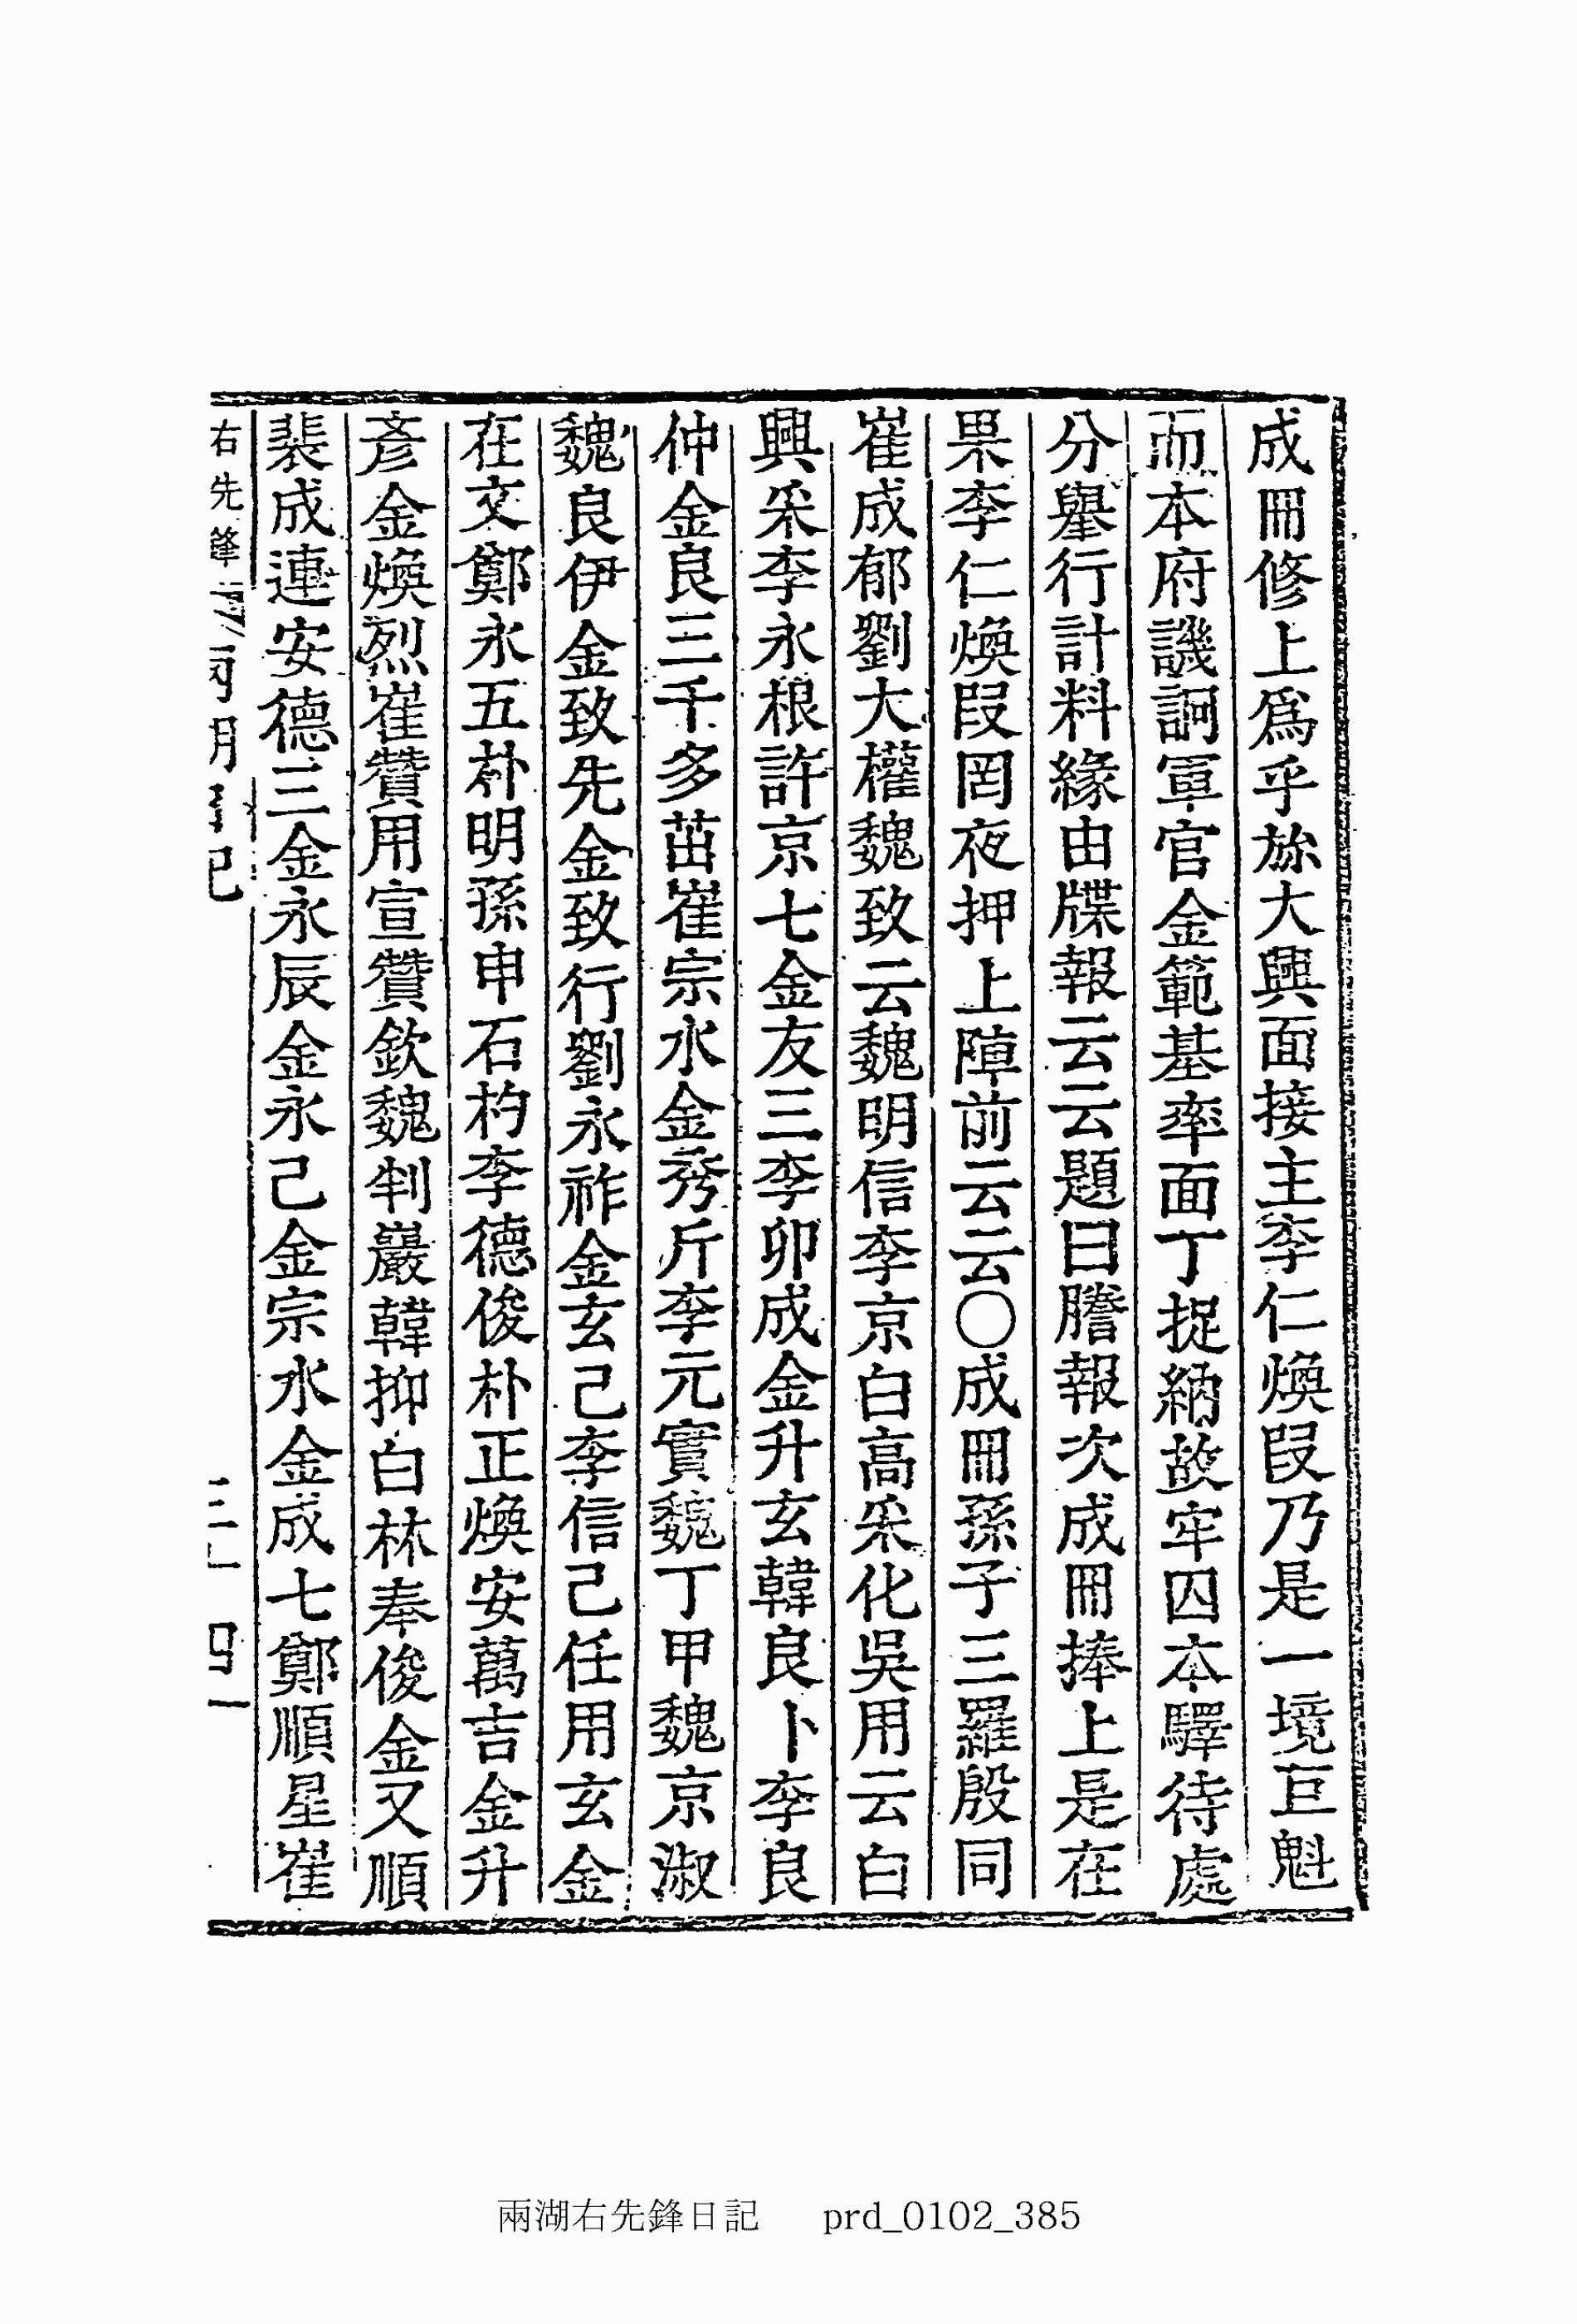 成冊修上爲乎旀大興面接主李仁煥段乃是一境巨魁
而本府譏詗軍官金範基率面丁捉納故牢囚本驛待處
分擧行計料緣由牒報云云題曰謄報次成冊捧上是在
果李仁煥段罔夜押上陣前云云〇成冊孫子三羅殷同
崔成郁劉大權魏致云魏明信李京白高采化吳用云白
興采李永根許京七金友三李卯成金升玄韓良卜李良
仲金良三千多苗崔宗水金秀斤李元實魏丁甲魏京淑
魏良伊金致先金致行劉永祚金玄己李信己任用玄金
在文鄭永五朴明孫申石杓李德俊朴正煥安萬吉金升
彥金煥烈崔贊用宣贊欽魏判巖韓抑白林奉俊金又順
裴成連安德三金永辰金永己金宗水金成七鄭順星崔
右先鋒
兩湖右先鋒日記 prd_0102_385